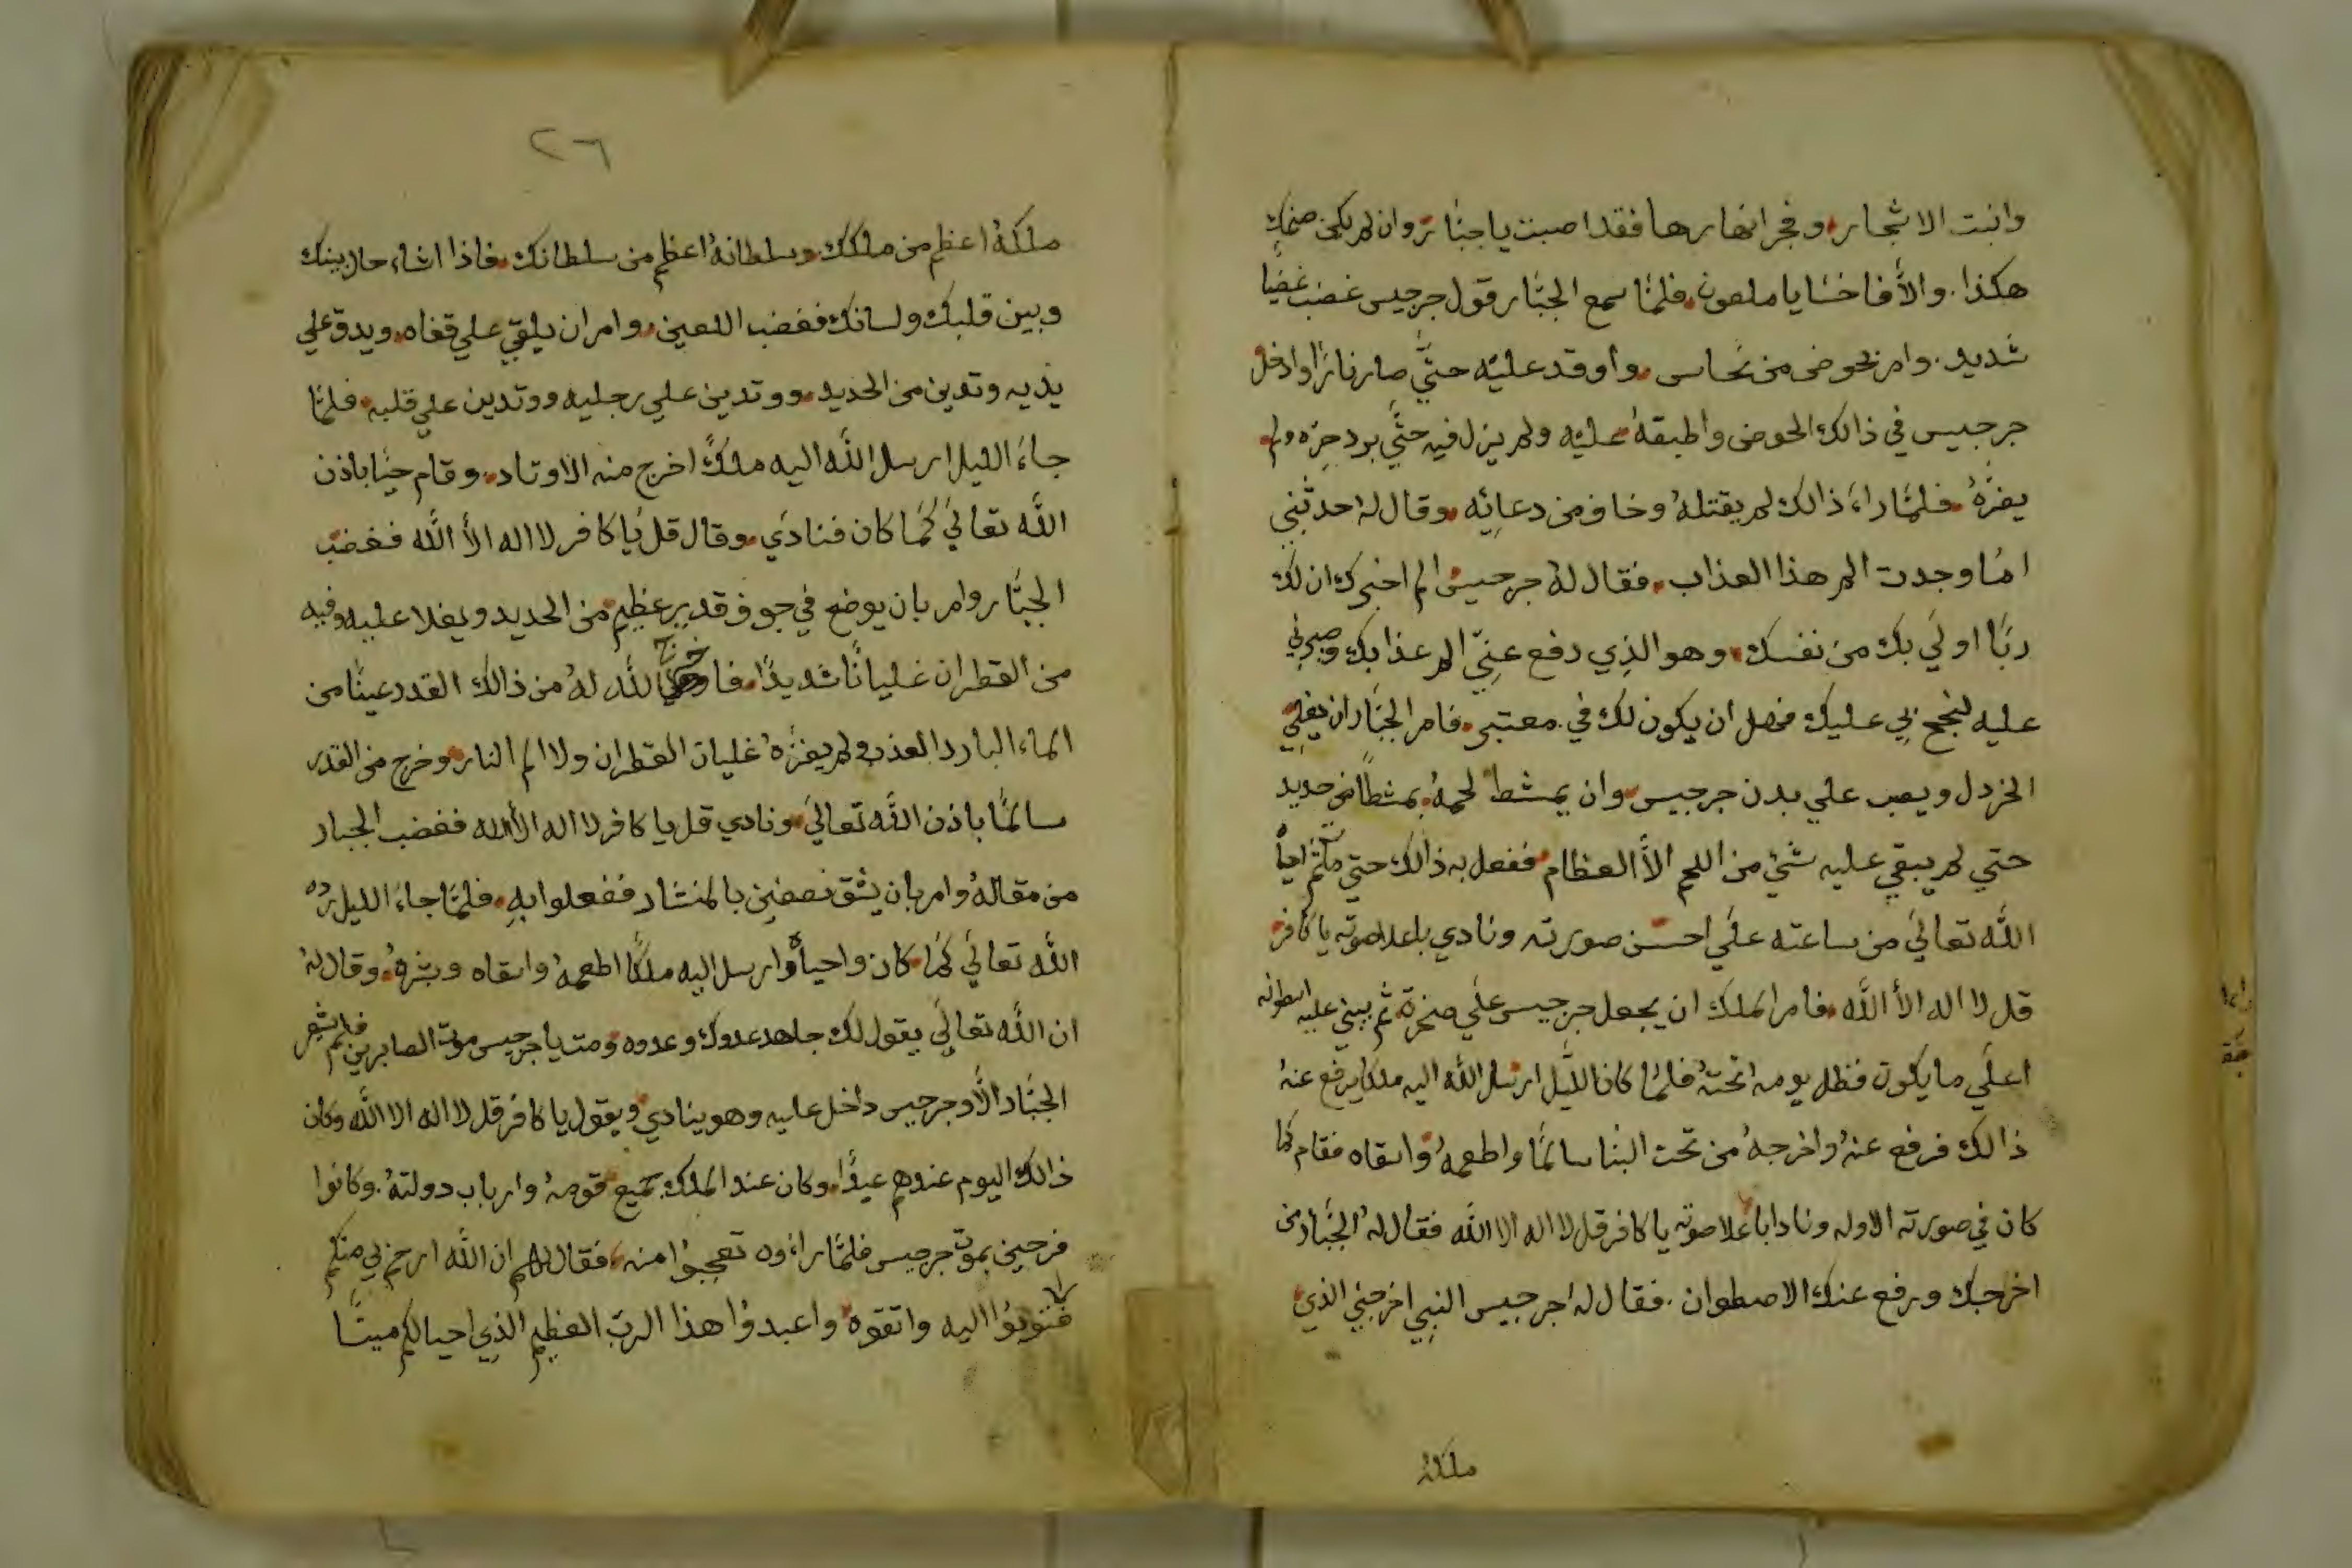 وانبت الاشجار وفجر انهارها فقد اصبت يا جبَّار وان لم يكن صنمك
هكذا. والاَّ فاخسا يا ملعون فلمَّا سمع الجبَّار قول جرجيس غضب غضبًا
شديد. وامر بحوض من نحاس واوقد عليه حتَّي صار نارًا وادخل
جرجيس في ذالك الحوض واطبقهُ عليه ولم يزل فيه حتَّي برد حره ولم
يضرّهُ فلمَّا راءَ ذالك لم يقتلهُ وخاف من دعائِه وقال له حدثني
امَا وجدت الم هذا العذاب فقال لهُ جرجيس الم اخبرك ان لك
ربًا اوليَ بك من نفسك وهو الذِي دفع عنِّي الم عذابك وصبرني
عليه لتحج بي عليك فهل ان يكون لك في معتبر فامر الجبَّار ان يغلِي
الخردل ويصب علي بدن جرجيس وان يمشط لحمهُ بمشطًا من حديد
حتي لم يبقي عليه شيْ من اللحم الاَّ العظام ففعل به ذالك حتي مات ثم احياهُ
اللّه تعاليَ من ساعته علَي احسن صورته ونادي باعلا صوته يا كافر
قل لا اله الاَّ اللّه فامر الملك ان يجعل جرجيس علَي صخرة ثم يبني عليه اسطوانه
اعلَي ما يكون فظل يومه تحتهُ فلمَّا كان اللَّيل ارسل اللّه اليه ملكا يرفع عنهُ
ذالك فرفع عنهُ واخرجهُ من تحت البنا سالمًا واطعمهُ واسقاه فقام كما
كان في صورته الاوله ونادا باعلا صوته يا كافر قل لا اله الا اللّه فقال لهُ الجبَّار من
اخرجك ورفع عنك الاصطوان. فقال لهُ جرجيس النبِي اخرجني الذي
ملكهُ
٢٦
ملكهُ اعظم من ملكك وسلطانهُ اعظم من سلطانك فاذا اشاءَ حال بينك
وبين قلبك ولسانك فغضب اللعين وامر ان يلقي علي قفاه ويدق علي
يديه وتدين من الحديد ووتدين علي رجليه ووتدين علي قلبه فلمَّا
جاءَ الليل ارسل اللّه اليه ملكً اخرج منه الاوتاد وقام حيًا باذن
اللّه تعاليَ كمَا كان فنادَي وقال قل يَا كافر لا اله الاَّ اللّه فغضب
الجبَّار وامر بان يوضع في جوف قدير عظيم من الحديد ويغلا عليه وفيه
من القطران غليانًا شديدًا فاخرج اللّه لهُ من ذالك القدر عينًا من
الماءِ البارد العذب ولم يضرّهُ غليان القطران ولا الم النار وخرج من القدر
سالمًا باذن اللّه تعاليَ ونادي قل يا كافر لا اله الاَّ اللّه فغضب الجبار
من مقالهُ وامر بان يشق نصفين بالمنشار ففعلوا بهِ فلمَّا جاءَ الليل ردّه
اللّه تعالَي كمَا كان واحياهُ وارسل اليه ملكًا اطعمهُ واسقاه وبشرهُ وقال لهُ
ان اللَّه تعالَي يقول لك جاهد عدوك وعدوه ومت يا جرجيس موت الصابرين فلم يشعر
الجبَّار الاَّ وجرجيس داخل عليه وهو ينادي ويقول يا كافر قل لا اله الا اللّه وكان
ذالك اليوم عندهم عيدًا وكان عند الملك جميع قومهُ وارباب دولتهُ. وكانوا
فرحين بموت جرجيس فلمَّا راءَوه تعجبوُا منه فقال لهم ان اللّه ارحم بي منكم
فتوبوُا اليه واتقوه واعبدوُا هذا الربّ العظيم الذِي احيا لكم ميتًا